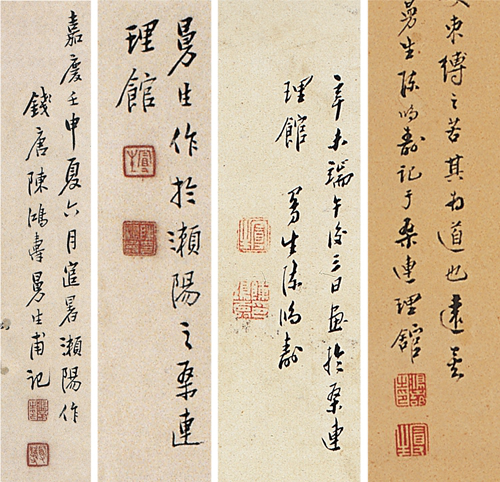 嘉慶壬申夏六月暑瀨陽作
錢唐陳鴻壽曼生甫記
曼生作於瀨陽之桑連
理館
辛未端午後三日畫於桑連
理館 曼生陳鴻壽
束縛之苦其為道也遠矣
曼生陳鴻壽記于桑連理館